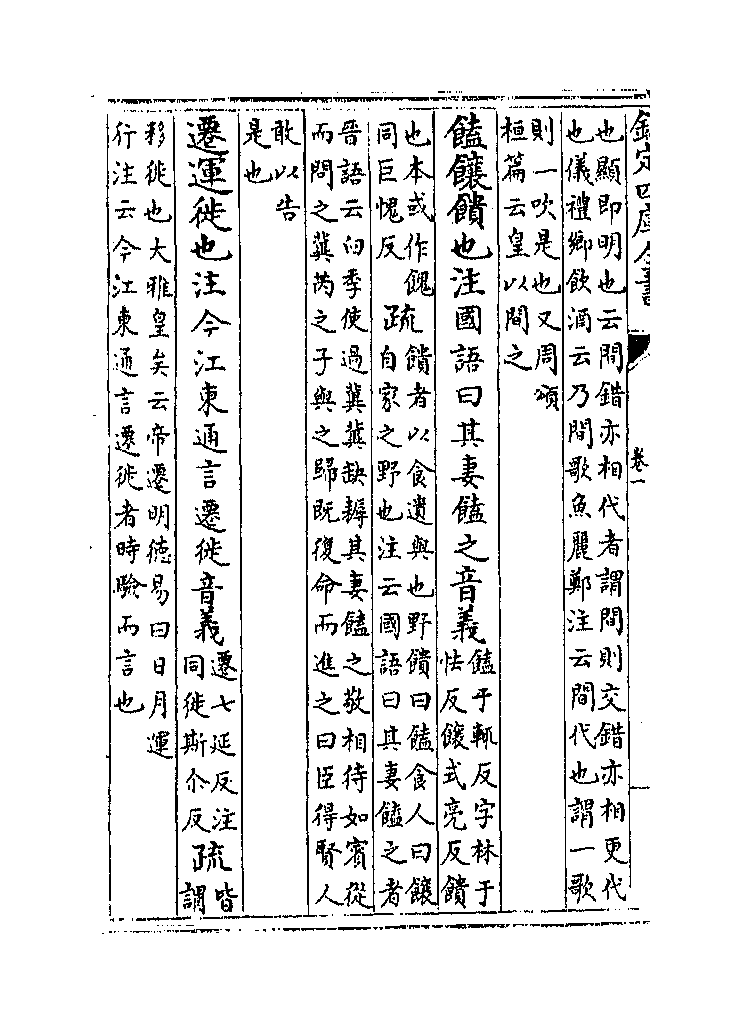 欽定四庫全書
卷一
也顯即明也云間錯亦相代者謂間則交錯亦相更代
也儀禮鄉飲酒云乃間歌魚麗鄭注云間代也謂一歌
則一吹是也又周頌
桓篇云皇以間之
饁饟饋也注國語曰其妻饁之音義
饁于輒反字林于
怯反饟式亮反饋
也本或作餽
同巨愧反
疏
饋者以食遺與也野饋曰饁食人曰饟
自家之野也注云國語曰其妻饁之者
晉語云臼季使過冀冀缺耨其妻饁之敬相待如賓從
而問之冀芮之子與之歸既復命而進之曰臣得賢人
敢以告
是也
遷運徙也注今江東通言遷徙音義
遷七延反注
同徙斯尒反
疏
皆
謂
移徙也大雅皇矣云帝遷明徳易曰日月運
行注云今江東通言遷徙者時驗而言也